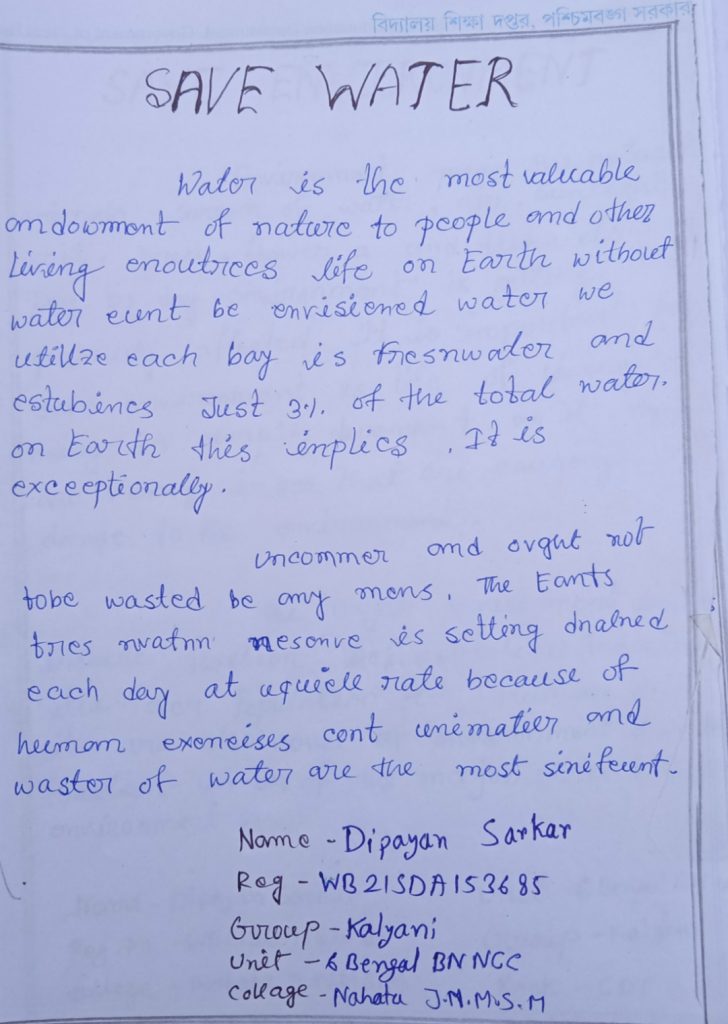 বিদ্যালয় শিক্ষা দপ্তর, পশ্চিমবঙ্গ সরকার
SAVE WATER
Water is the most valuable
andowment of nature to people and other
Living enoutrees life on Earth without
water eunt be envisiened water we
utillze each bay is freshwater and
estubincs Just 3%. of the total water.
on Earth this implics . It is
exceeptionally.
uncommer and ovgut not
tobe wasted be any mens. The Eants
tries nwatnn nesonve is setting dnalned
each day at aquicle rate because of
heumom exeneises cont unimatier and
wastor of water are the most sinifecent.
Name - Dipayan Sarkar
Reg - WB21SDA153685
Group - Kalyani
Unit - 6 Bengal BN NCC
Collage - Nahata J.N.M.S.M